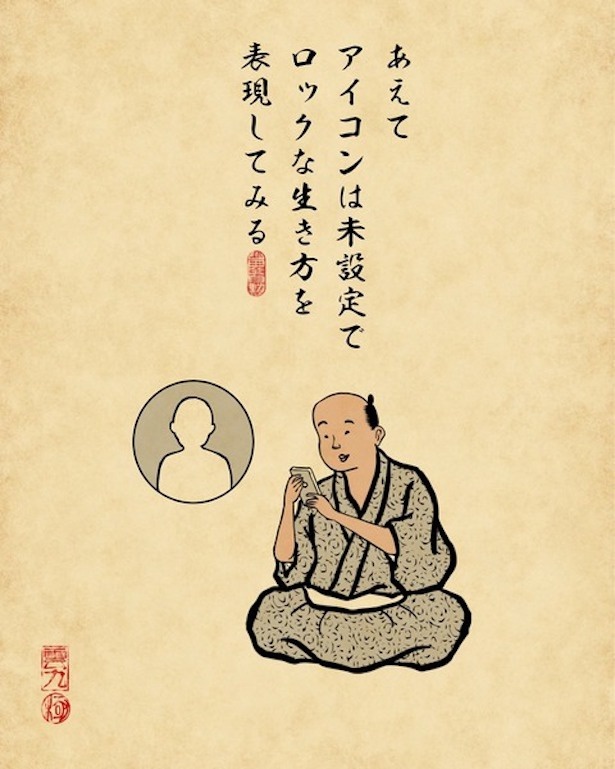 あえて
アイコンは未設定で
ロックな生き方を
表現してみる